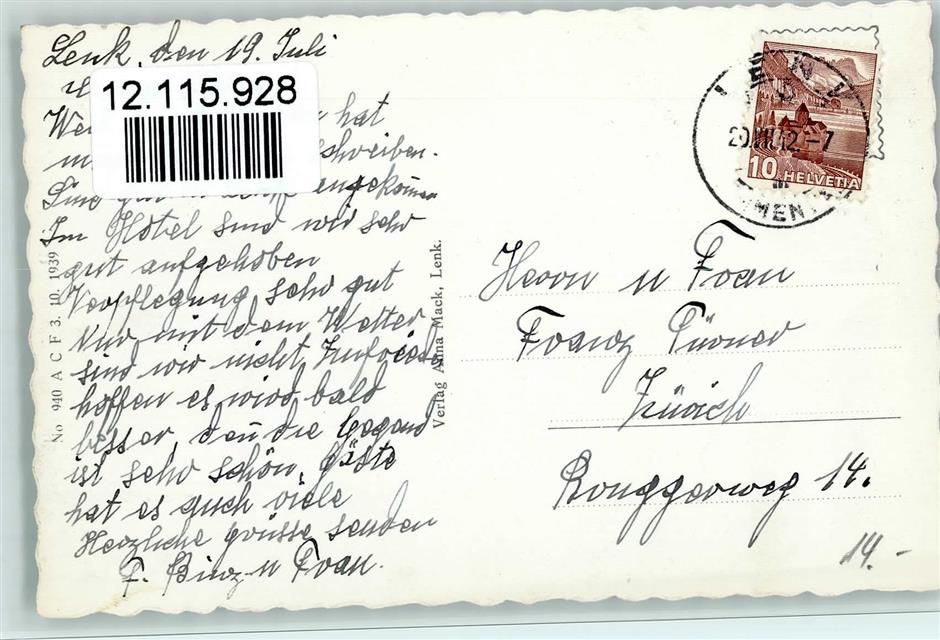 Lenk, den 19. Juli
12.115.928
hat
schreiben.
angekommen
Im Hotel sind wir sehr
gut aufgehoben
Verpflegung sehr gut
Nur mit dem Wetter
sind wir nicht zufrieden
hoffen es wird bald
besser, denn die Gegend
ist sehr schön, Gäste
hat es auch viele
Herzliche Grüsse senden
F. Binz u Frau.
No 940 A C F 3. 10. 1939
Verlag Anna Mack, Lenk.
10 HELVETIA
Herrn u Frau
Franz
Zürich
Ronggerweg 14.
14.-